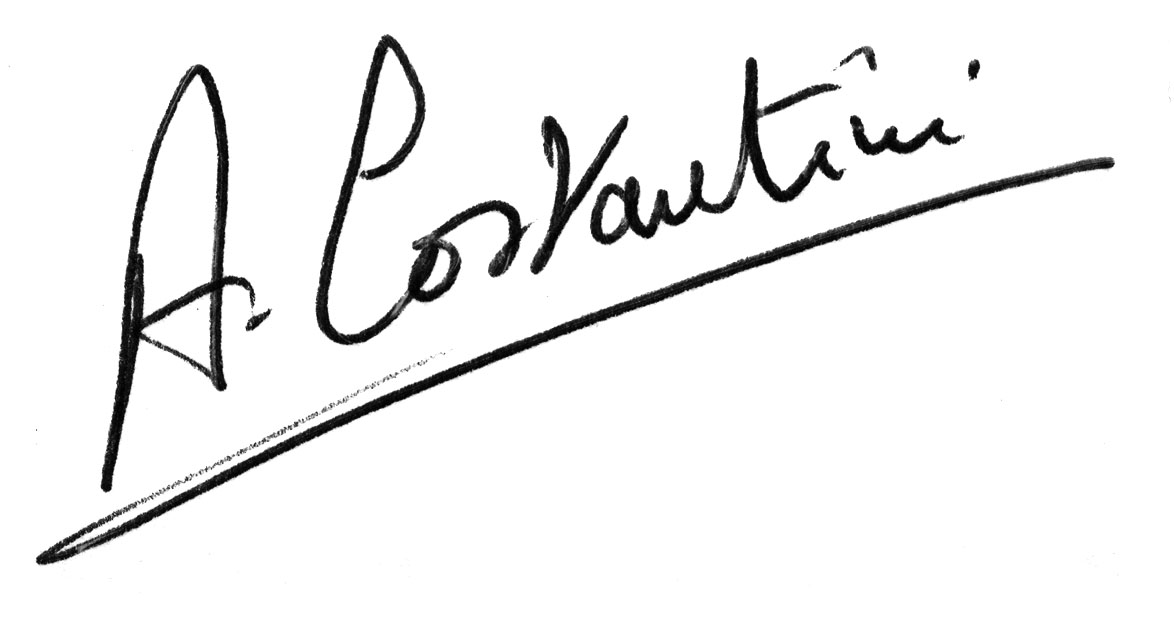 A. Costantini